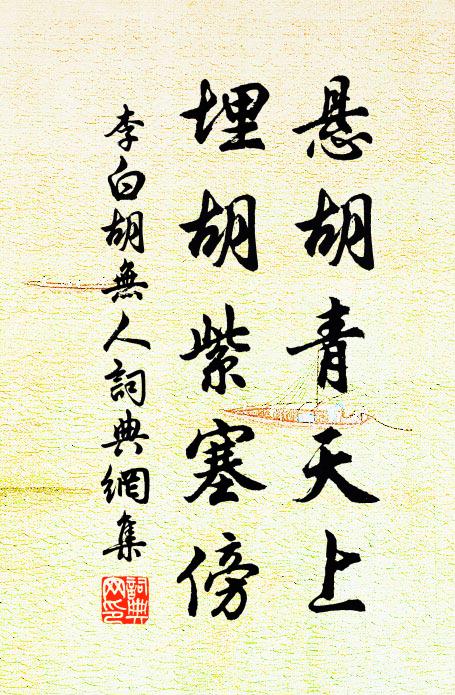 悬胡青天上
埋胡紫塞傍
李白胡無人詞典網集
詞典網印